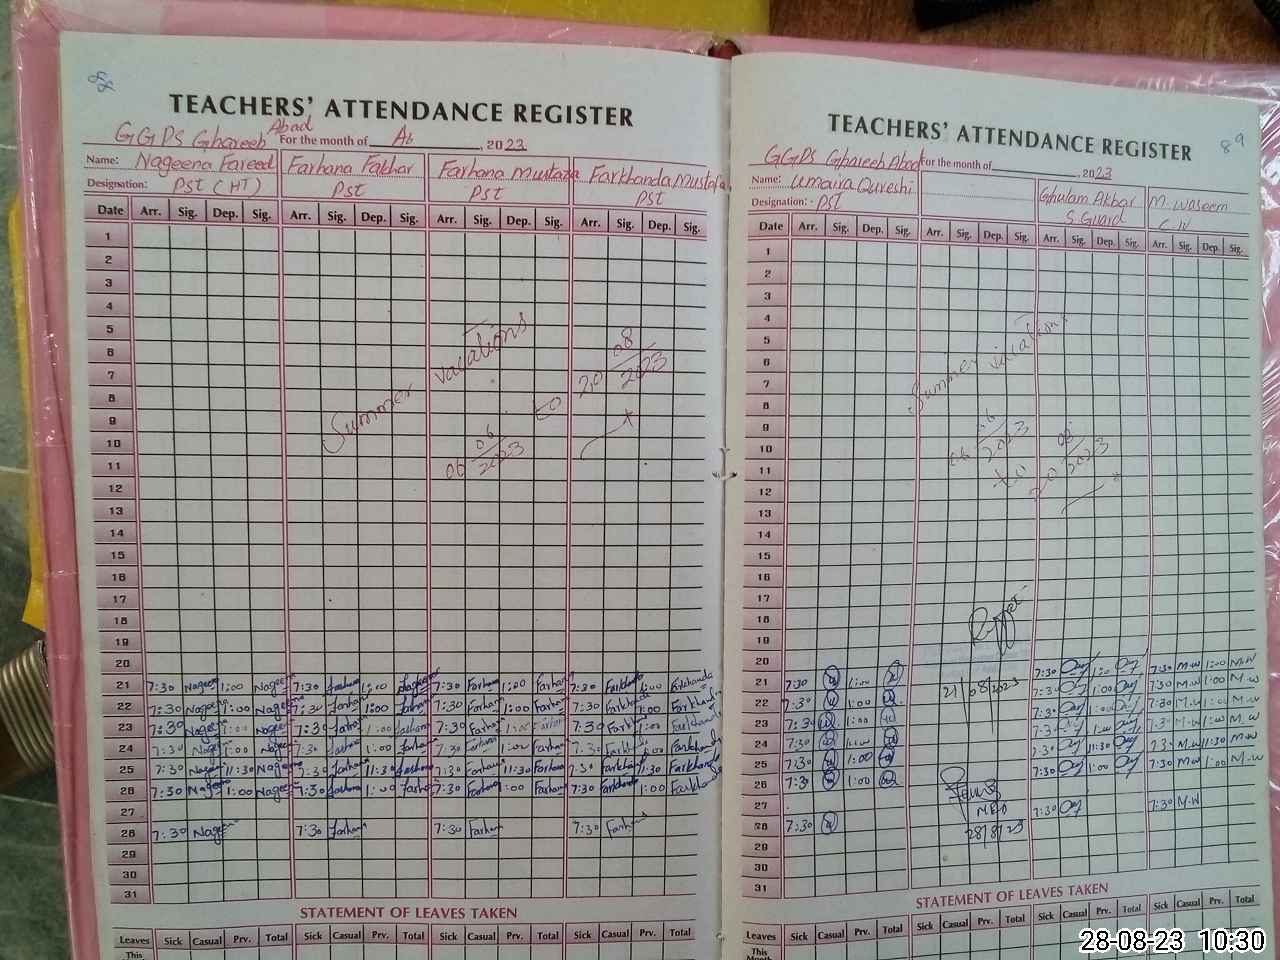 88
TEACHERS' ATTENDANCE REGISTER
GGPS Ghareeb Abad For the month of Ab, 2023
Name: Nageena Fareed Farhana Fakhar Farhana Mustafa Farkhanda Mustafa
Designation: PST (HT) PST PST PST
Date Arr. Sig. Dep. Sig. Arr. Sig. Dep. Sig. Arr. Sig. Dep. Sig. Arr. Sig. Dep. Sig.
1
2
3
4
5
6
7
8
9
10
11
12
13
14
15
16
17
18
19
20
Summer vacations
06 06/2023 to 20 08/2023
21 7:30 Nageena 1:00 Nageena 7:30 Farhana 1:00 Farhana 7:30 Farhana 1:00 Farhana 7:30 Farkhanda 1:00 Farkhanda
22 7:30 Nageena 1:00 Nageena 7:30 Farhana 1:00 Farhana 7:30 Farhana 1:00 Farhana 7:30 Farkhanda 1:00 Farkhanda
23 7:30 Nageena 1:00 Nageena 7:30 Farhana 1:00 Farhana 7:30 Farhana 1:00 Farhana 7:30 Farkhanda 1:00 Farkhanda
24 7:30 Nageena 1:00 Nageena 7:30 Farhana 1:00 Farhana 7:30 Farhana 1:00 Farhana 7:30 Farkhanda 1:00 Farkhanda
25 7:30 Nageena 11:30 Nageena 7:30 Farhana 11:30 Farhana 7:30 Farhana 11:30 Farhana 7:30 Farkhanda 11:30 Farkhanda
26 7:30 Nageena 1:00 Nageena 7:30 Farhana 1:00 Farhana 7:30 Farhana 1:00 Farhana 7:30 Farkhanda 1:00 Farkhanda
27
28 7:30 Nageena 7:30 Farhana 7:30 Farhana 7:30
29
30
31
STATEMENT OF LEAVES TAKEN
Leaves Sick Casual Prv. Total Sick Casual Prv. Total Sick Casual Prv. Total Sick Casual Prv. Total
This
89
TEACHERS' ATTENDANCE REGISTER
GGPS Ghareeb Abad For the month of, 2023
Name: Umaira Qureshi Ghulam Akbar M. Waseem
Designation: PST S. Guard C IV
Date Arr. Sig. Dep. Sig. Arr. Sig. Dep. Sig. Arr. Sig. Dep. Sig. Arr. Sig. Dep. Sig.
1
2
3
4
5
6
7
8
9
10
11
12
13
14
15
16
17
18
19
20
Summer vacations
06 06/2023
to
20 08/2023
21 7:30 1:00 21/08/2023 7:30 1:00 7:30 M.W 1:00 M.W
22 7:30 1:00 7:30 1:00 7:30 M.W 1:00 M.W
23 7:30 1:00 7:30 1:00 7:30 M.W 1:00 M.W
24 7:30 1:00 7:30 1:00 7:30 M.W 1:00 M.W
25 7:30 1:00 7:30 11:30 7:30 M.W 11:30 M.W
26 7:30 1:00 7:30 1:00 7:30 M.W 1:00 M.W
27
28 7:30 28/8/23 7:30 7:30 M.W
29
30
31
STATEMENT OF LEAVES TAKEN
Leaves Sick Casual Prv. Total Sick Casual Prv. Total Sick Casual Prv. Total Sick Casual Prv. Total
This
28-08-23 10:30